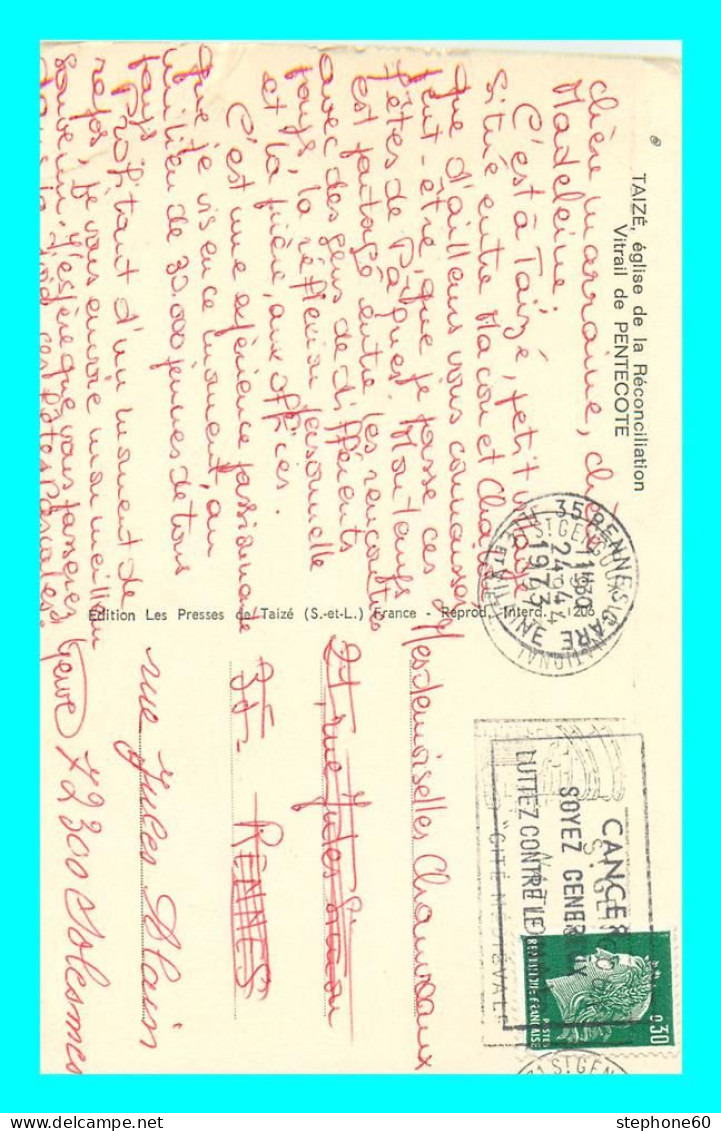 TAIZÉ, église de la Réconciliation
Vitrail de PENTECOTE
Chère marraine, chère
Madeleine,
C'est à Taizé, petit village
situé entre Macon et Chalon
que d'ailleurs vous connaissez
peut-être, que je passe ces
fêtes de Pâques. Mon temps
est partagé entre les rencontres
avec des gens de différents
pays, la réflexion personnelle
et la prière, aux offices.
C'est une expérience passionnante
que je vis en ce moment au
milieu de 30.000 jeunes de tous
pays.
Profitant d'un moment de
repos, je vous envoie mon meilleur
souvenir. J'espère que vous passerez
ces fêtes Pascales
Edition Les Presses de Taizé (S.-et-L.) France - Reprod. Interd. - 1206
35 RENNES GARE
11H30
24-4
1973
ILLE-ET-VILAINE
CANCER
SOYEZ GENEREUX
LUTTEZ CONTRE LE
"CITÉ MÉDIÉVALE"
0,30
POSTES
REPUBLIQUE FRANCAISE
71 ST GEN
Mesdemoiselles Chauveaux
27, rue Jules Simon
35- RENNES
rue Jules Alain
72300 Solesmes
stephone60